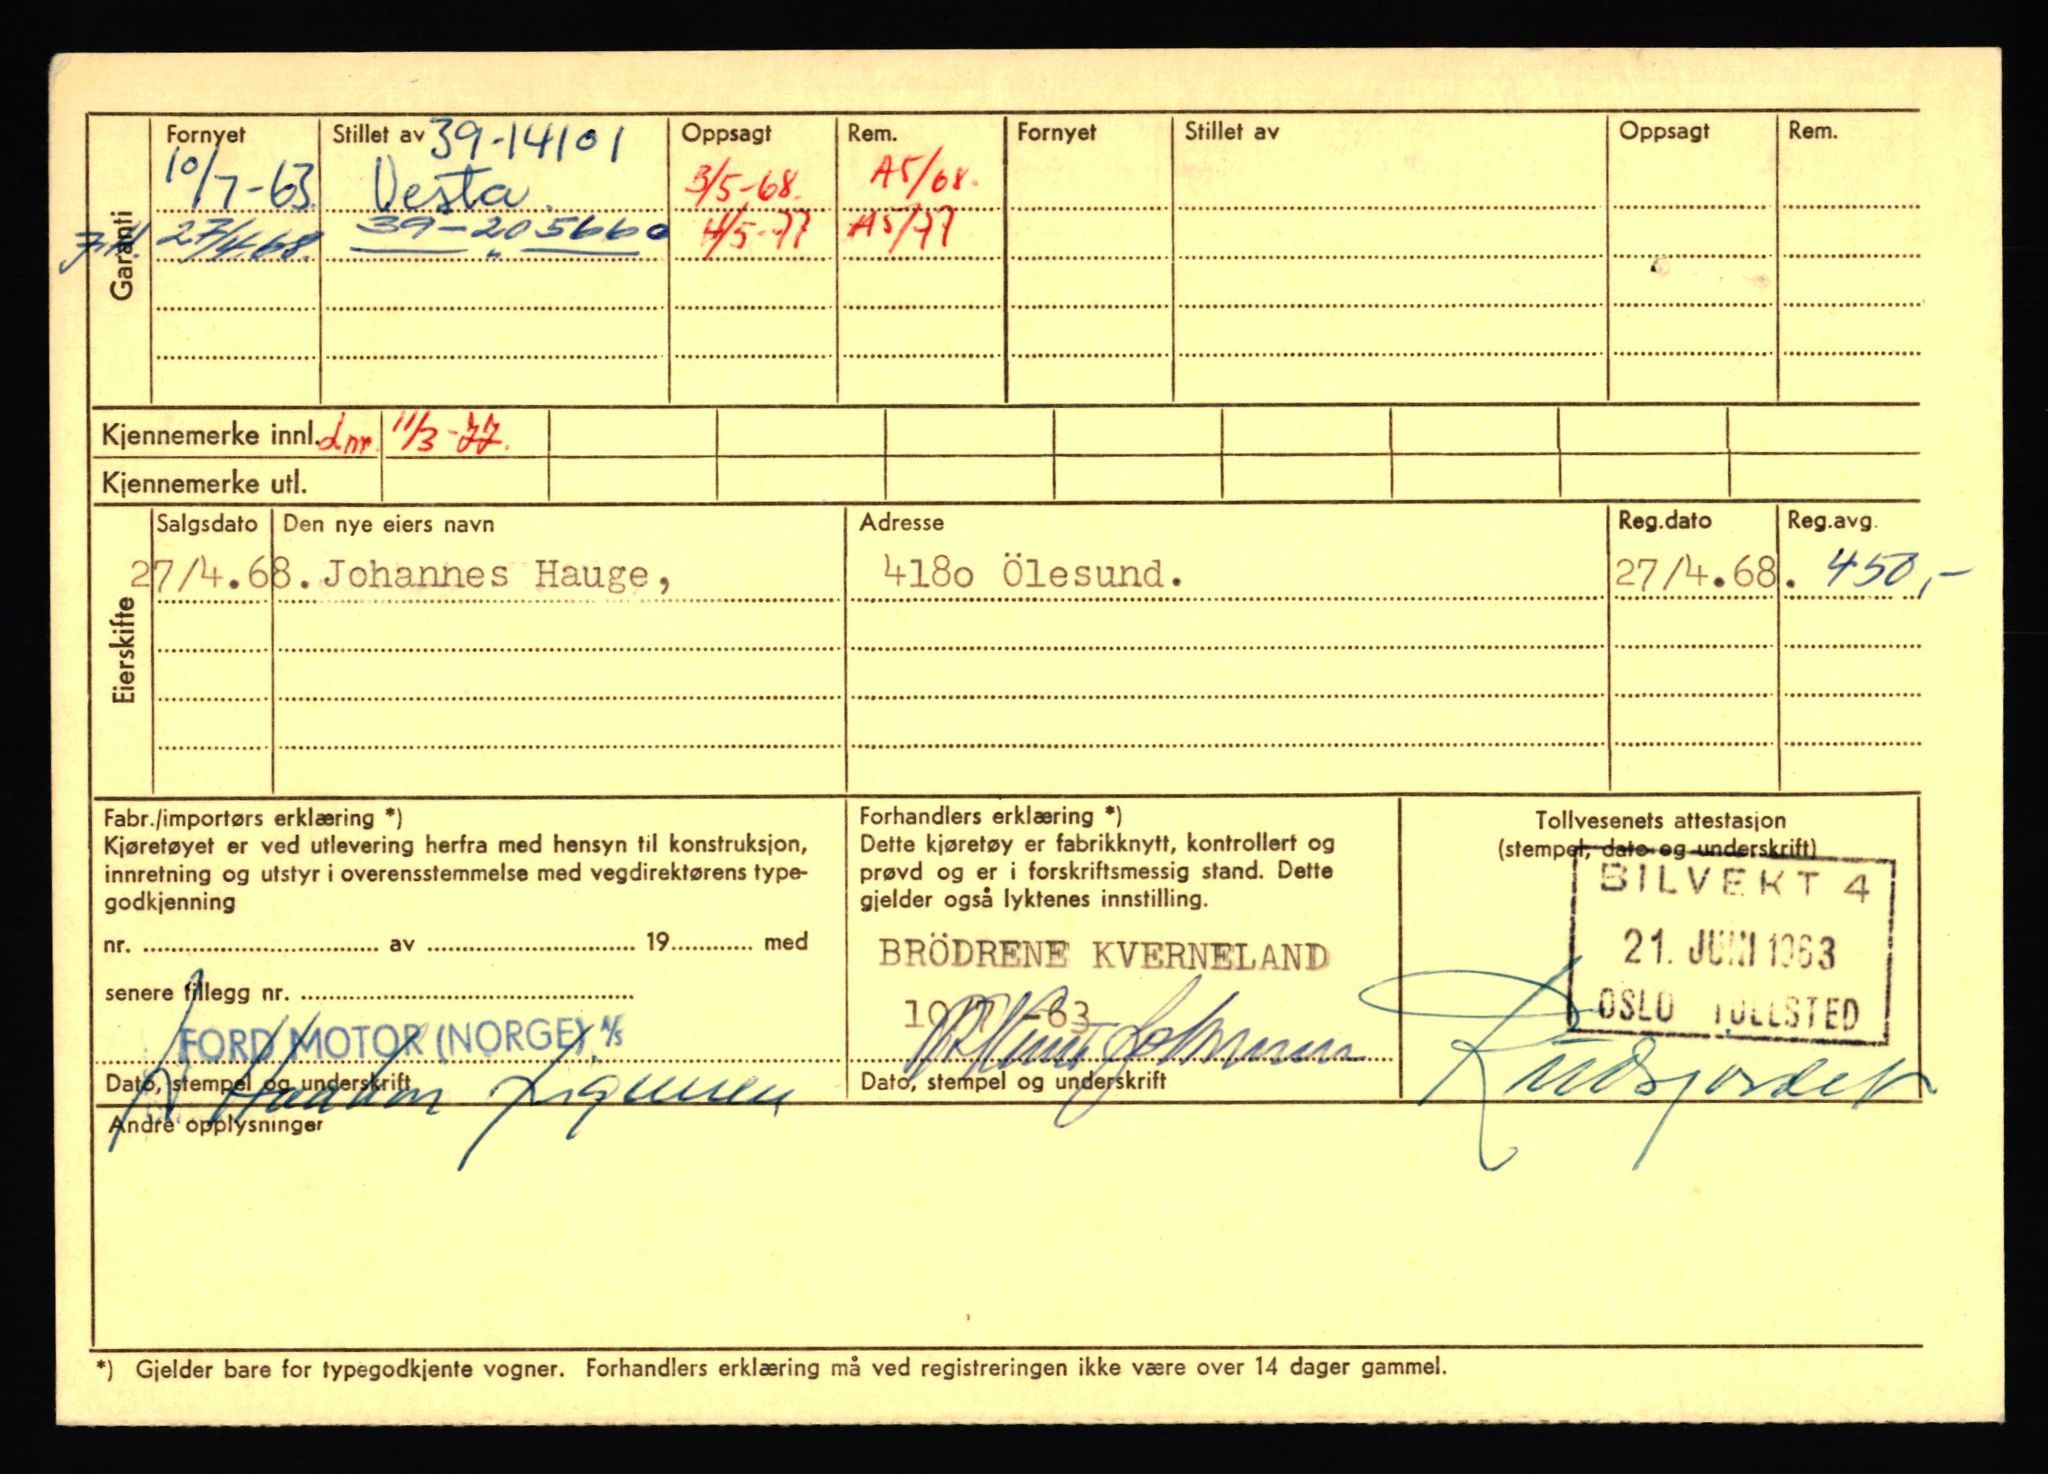 Garanti
Fornyet Stillet av 39-14101 Oppsagt Rem. Fornyet Stillet av Oppsagt Rem.
10/7-63. Vesta. 3/5-68. A5/68.
27/4.68. 39-205660 4/5-77 A5/77
Kjennemerke innl. Lnr. 11/3-77.
Kjennemerke utl.
Eierskifte
Salgsdato Den nye eiers navn Adresse Reg.dato Reg.avg.
27/4.68. Johannes Hauge, 4180 Ölesund. 27/4.68. 450,-
Fabr./importørs erklæring *)
Kjøretøyet er ved utlevering herfra med hensyn til konstruksjon,
innretning og utstyr i overensstemmelse med vegdirektørens type-
godkjenning
nr. .......... av .......... 19.......... med
senere tillegg nr. ..........
FORD MOTOR (NORGE) A/S
Dato, stempel og underskrift
Forhandlers erklæring *)
Dette kjøretøy er fabrikknytt, kontrollert og
prøvd og er i forskriftsmessig stand. Dette
gjelder også lyktenes innstilling.
BRÖDRENE KVERNELAND
10/7-63
Dato, stempel og underskrift
Tollvesenets attestasjon
(stempel, dato og underskrift)
BILVEKT 4
21. JUNI 1963
OSLO TOLLSTED
Andre opplysninger
*) Gjelder bare for typegodkjente vogner. Forhandlers erklæring må ved registreringen ikke være over 14 dager gammel.